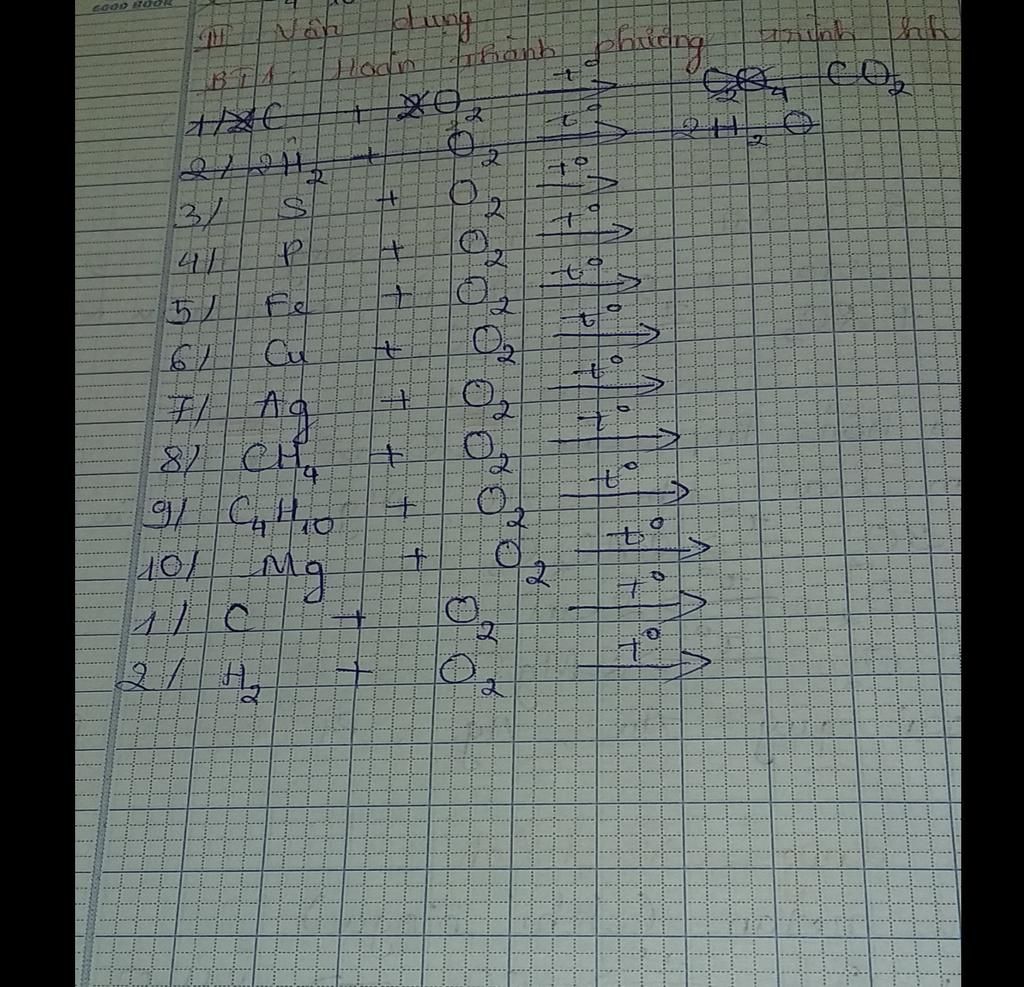 GOOD BOOK
III Vận dụng
BT1. Hoàn thành phương trình hh
1/ 2C + 2O₂ t° → C₂O₄ CO₂
2/ 2H₂ + O₂ t° → 2H₂O
3/ S + O₂ t° →
4/ P + O₂ t° →
5/ Fe + O₂ t° →
6/ Cu + O₂ t° →
7/ Ag + O₂ t° →
8/ CH₄ + O₂ t° →
9/ C₄H₁₀ + O₂ t° →
10/ Mg + O₂ t° →
1/ C + O₂ t° →
2/ H₂ + O₂ t° →